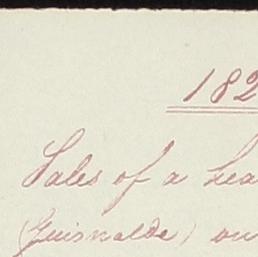 182
Sales of a Lea
(Guisnalde) on